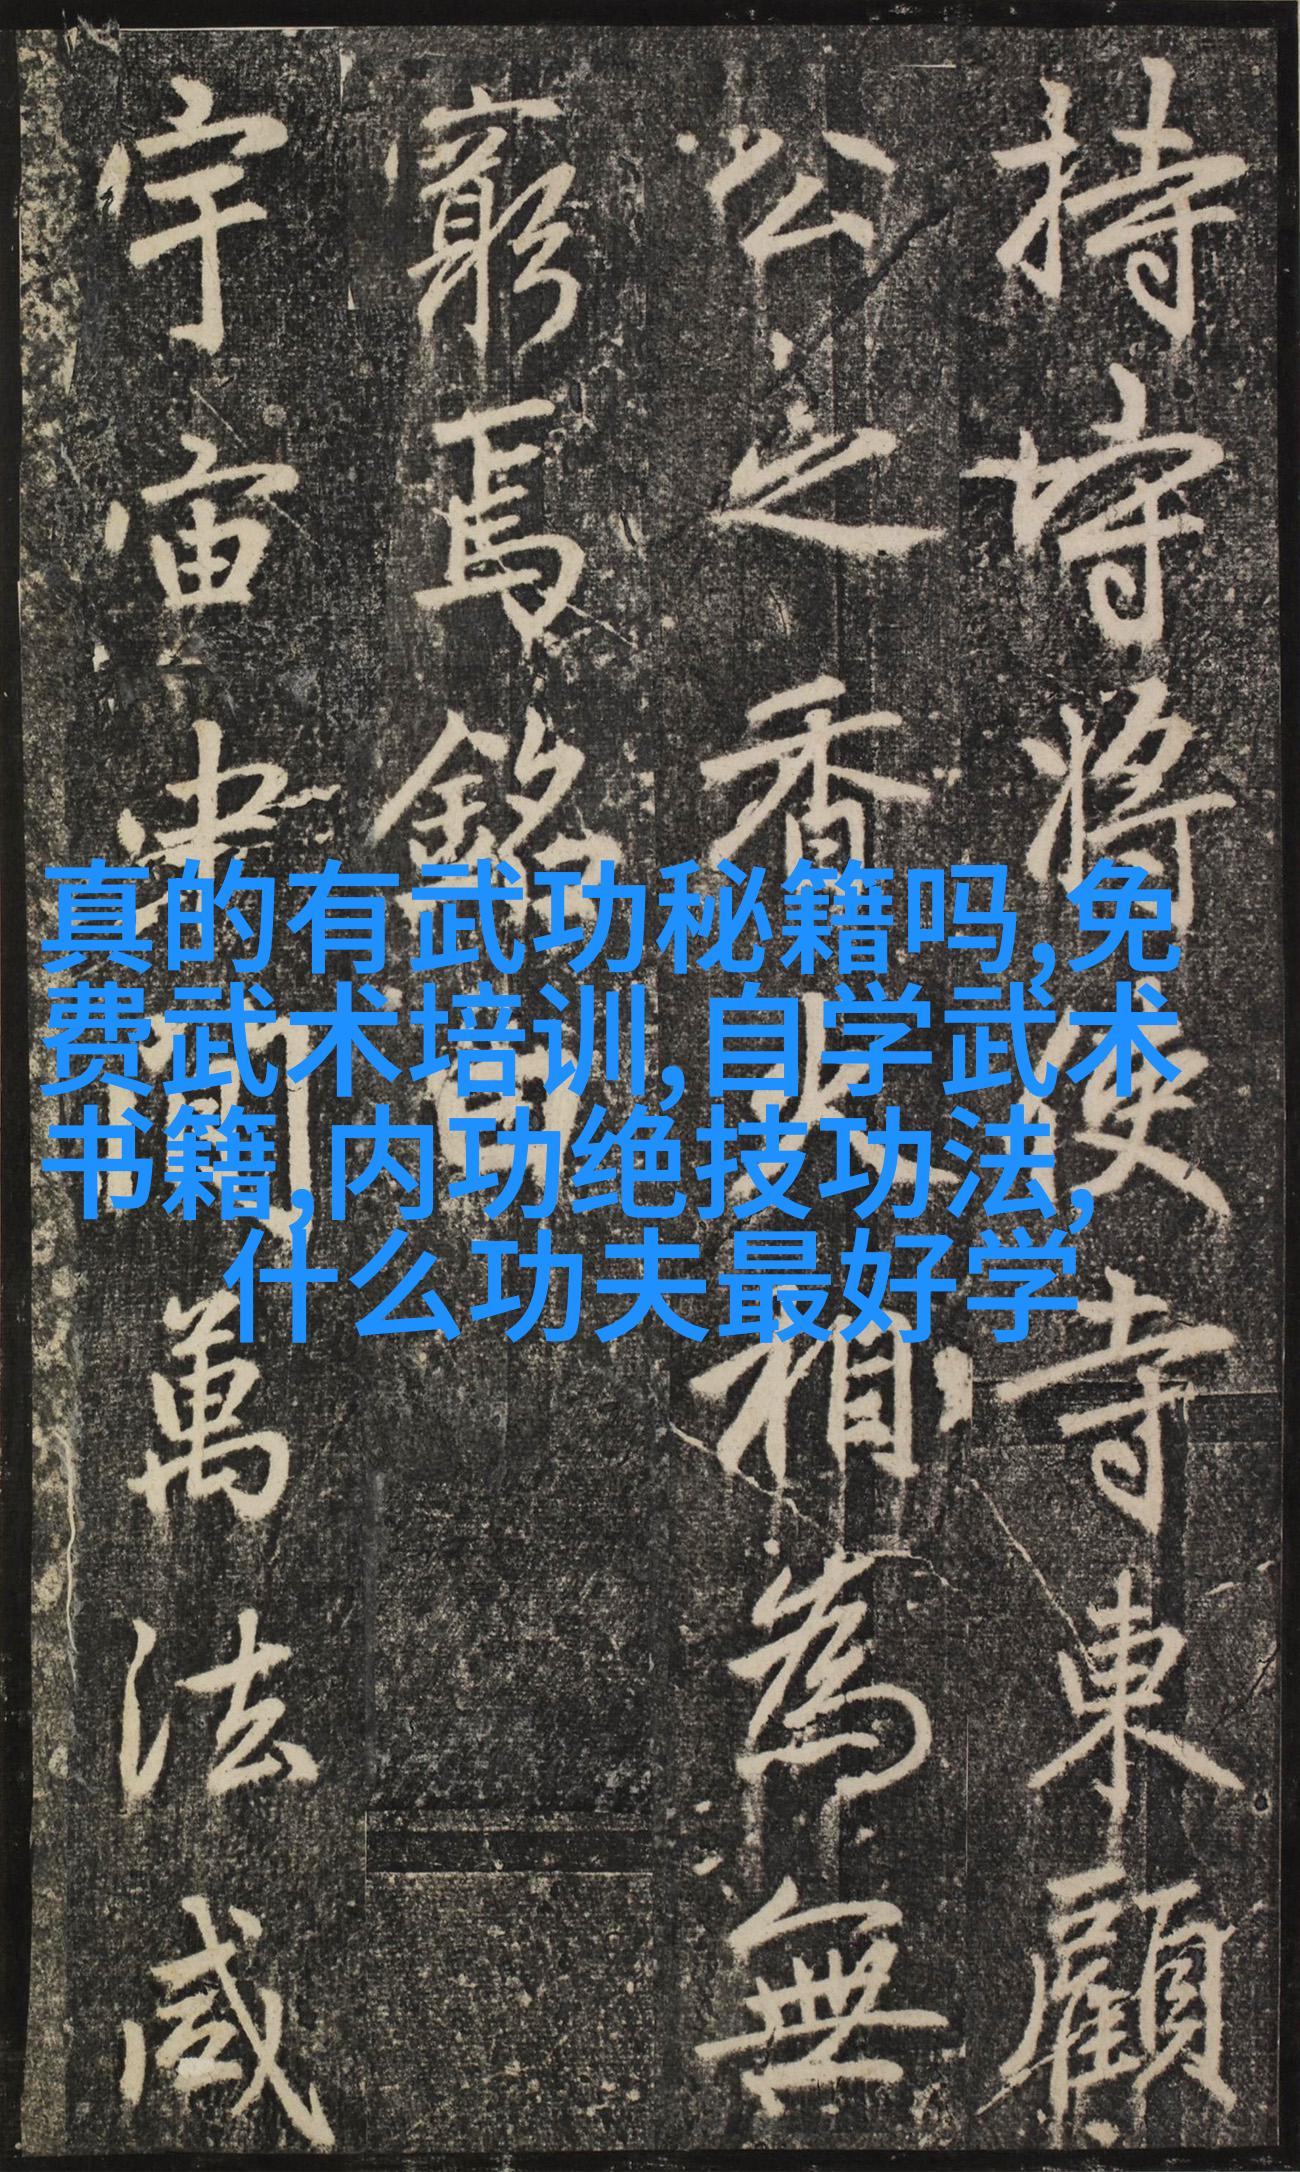 持将使寺東顧
公之香火相為無
窮焉銘曰
宇宙萬法咸
真的有武功秘籍吗,免
费武术培训,自学武术
书籍,内功绝技功法,
什么功夫最好学